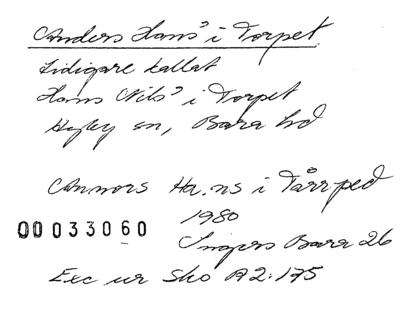 Anders Hans' i Torpet
tidigare kallat
Hans Nils' i Torpet
Hyby sn, Bara hd
Annors Ha.ns i Tårrped
1980
00033060
Ingers Bara 26
Exc ur Sko A2:175